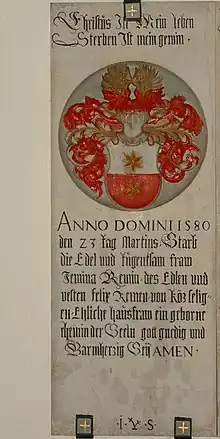 Christus Ist Mein leben
Sterben Ist mein gewin ·
ANNO DOMINI 1580
den 23 tag Martius Starb
die Edel und Tugentsam fraw
des Edlen und
vesten felix von
Ehliche hausfraw ein geborne
der Seeln gott gnedig und
Barmherzig Sey AMEN ·
· I · S ·